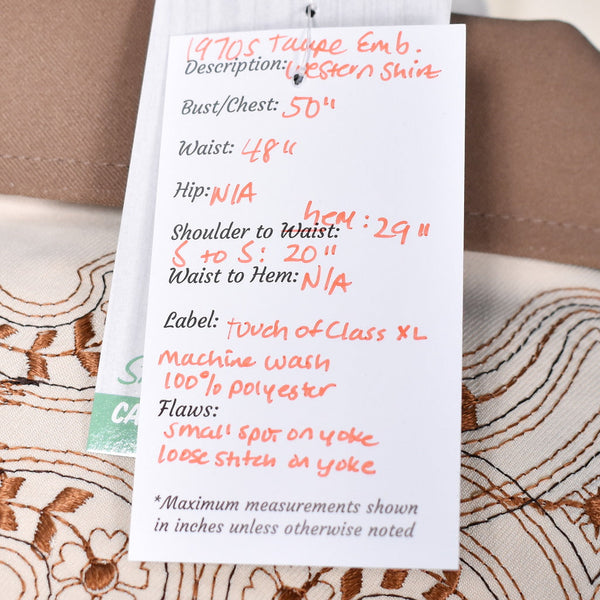 1970s Taupe Emb.
Description: Western Shirt
Bust/Chest: 50"
Waist: 48"
Hip: N/A
hem:
Shoulder to Waist: 29"
S to S: 20"
Waist to Hem: N/A
Label: Touch of Class XL
Machine Wash
100% polyester
Flaws:
small spot on yoke
loose stitch on yoke
*Maximum measurements shown
in inches unless otherwise noted
CA